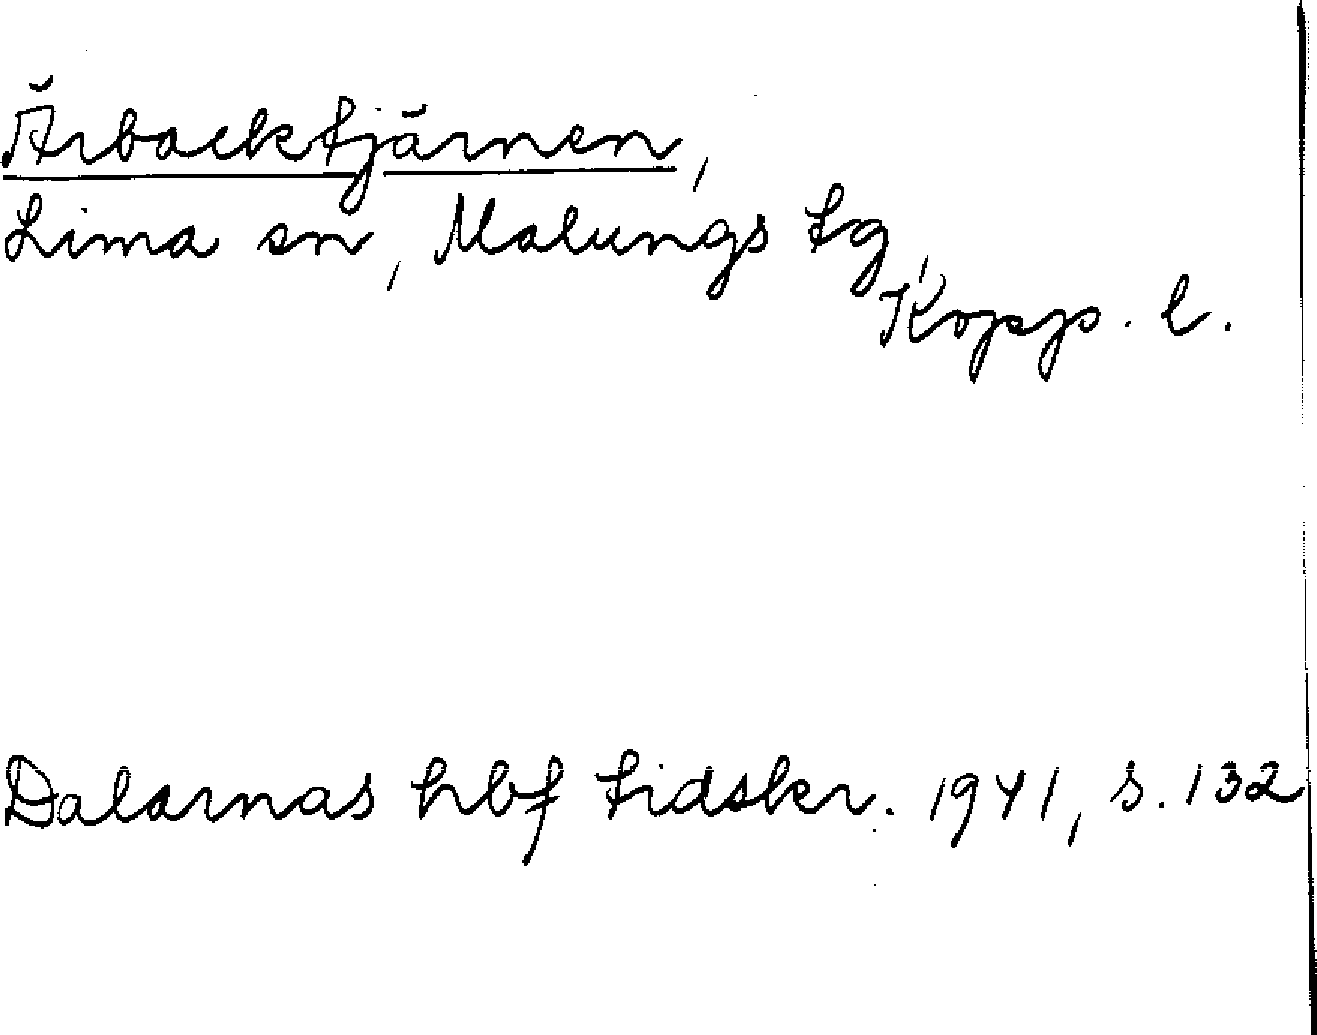 Ärbacktjärnen,
Lima sn, Malungs tg,
Kopp. l.
Dalarnas hbf tidskr. 1941, s. 132